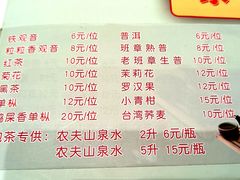 铁观音 6元/位 普洱 6元/位
粒粒香观音 8元/位 班章熟普 8元/位
红茶 10元/位 老班章生普 10元/位
菊花 10元/位 茉莉花 12元/位
黑茶 10元/位 罗汉果 12元/位
单枞 12元/位 小青柑 15元/位
鸭屎香单枞 12元/位 台湾荞麦 10元/位
泡茶专供：农夫山泉水 2升 6元/瓶
农夫山泉水 5升 15元/瓶